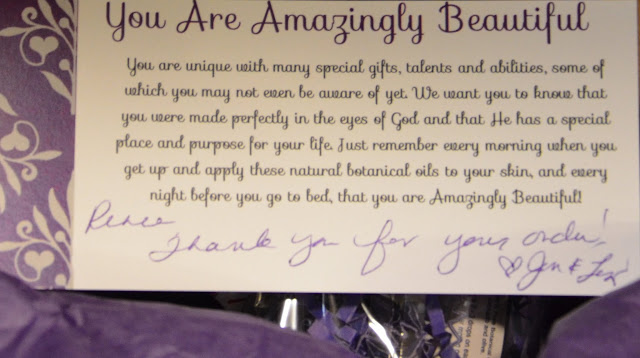 You Are Amazingly Beautiful
You are unique with many special gifts, talents and abilities, some of
which you may not even be aware of yet. We want you to know that
you were made perfectly in the eyes of God and that He has a special
place and purpose for your life. Just remember every morning when you
get up and apply these natural botanical oils to your skin, and every
night before you go to bed, that you are Amazingly Beautiful!
Renee
Thank you for your order!
♡ Jen &